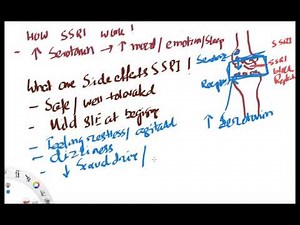 HOW SSRI work?
- ↑ Serotonin → ↑ mood / emotion/sleep
What are Side effects SSRI ?
- Safe / well tolerated
- Mild S/E at begining
- Feeling restless / agitated
- dizziness
- ↓ sexual drive /
SSRI
SSRI
block
↑ Serotonin